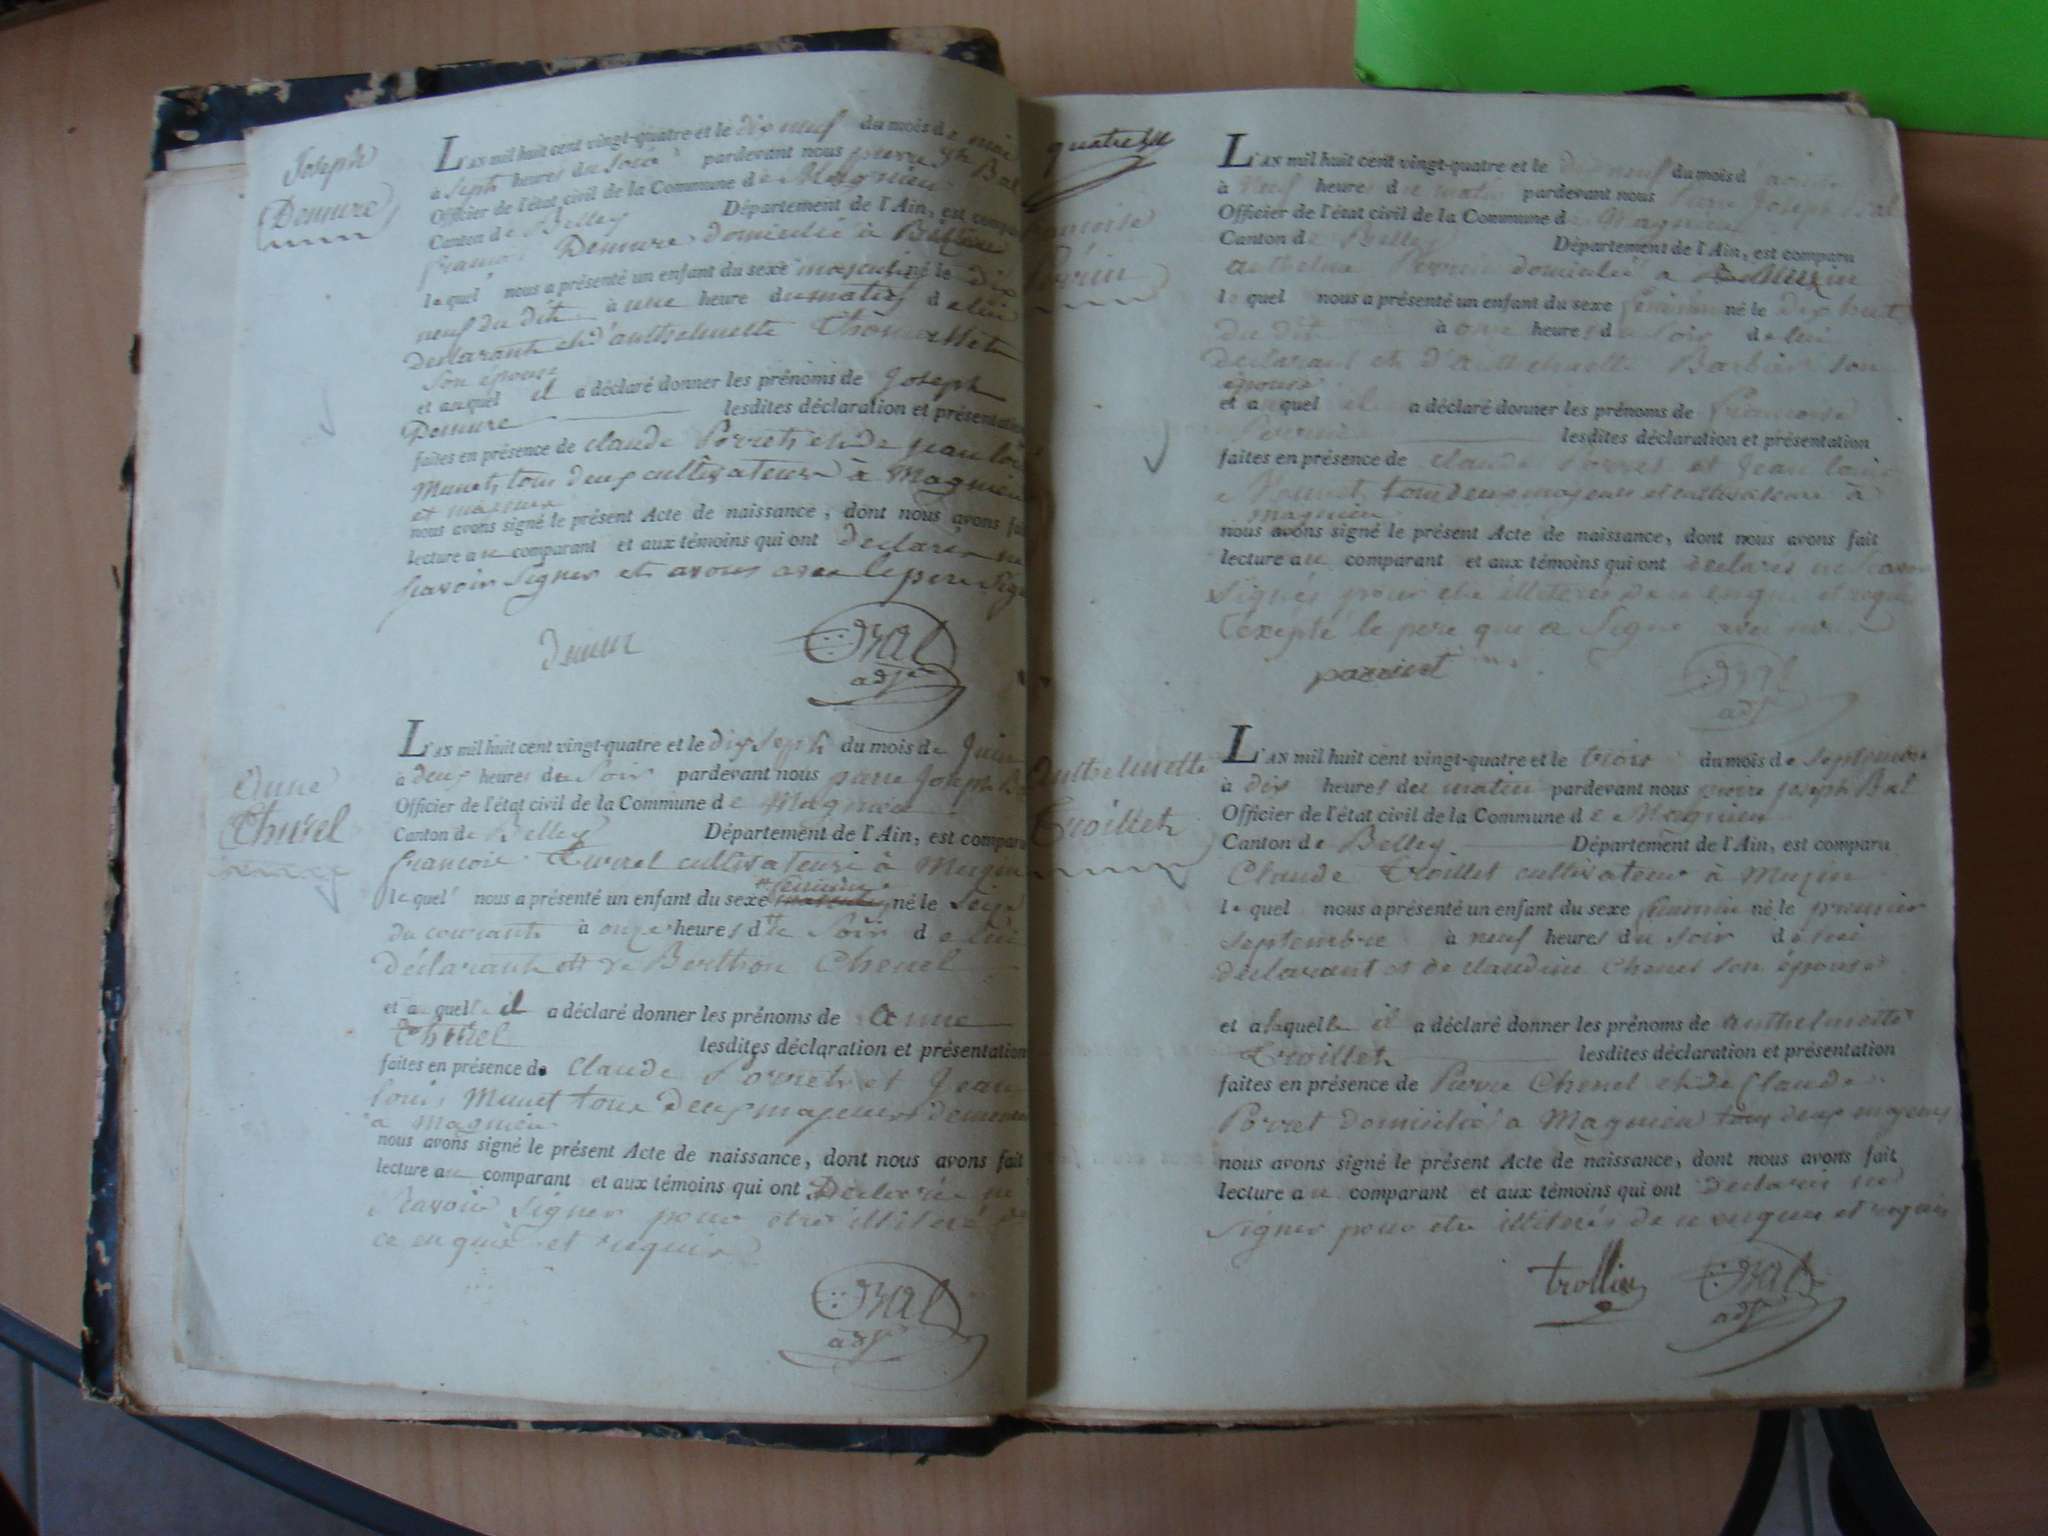 Joseph
Demure
L'AN mil huit cent vingt-quatre et le dix neuf du mois de mai
à sept heures du soir pardevant nous pierre jh Bal
Officier de l'état civil de la Commune de Magnieu
Canton de Belley Département de l'Ain, est comparu
françois Demure domicilié à
le quel nous a présenté un enfant du sexe masculin né le dix
neuf du dit à une heure du matin de lui
declarant et d'anthelmette Thomasset
son épouse
et auquel il a déclaré donner les prénoms de Joseph
Demure lesdites déclaration et présentation
faites en présence de claude Porret et de jean louis
Munet tous deux cultivateurs à Magnieu
et majeurs
nous avons signé le présent Acte de naissance, dont nous avons fait
lecture au comparant et aux témoins qui ont declarer ne
scavoir signer et avons avec le pere signé
Bal
adj
Anne
Thurel
L'AN mil huit cent vingt-quatre et le dix sept du mois de Juin
à deux heures du soir pardevant nous pierre Joseph Bal
Officier de l'état civil de la Commune de Magnieu
Canton de Belley Département de l'Ain, est comparu
françois cultivateur à Musin
le quel nous a présenté un enfant du sexe feminin né le seize
du courant à onze heures du soir de lui
déclarant et de Berthon Chenel
et a quelle il a déclaré donner les prénoms de anne
Thurel lesdites déclaration et présentation
faites en présence de Claude Porret et Jean
louis Munet tous deux majeurs
à Magnieu
nous avons signé le présent Acte de naissance, dont nous avons fait
lecture au comparant et aux témoins qui ont Declarée ne
scavoir signer pour etre illiteré de
ce enquis et requis
Bal
adj
quatre
françoise
Perrin
L'AN mil huit cent vingt-quatre et le dix neuf du mois d aout
à neuf heures du matin pardevant nous Pierre Joseph Bal
Officier de l'état civil de la Commune de Magnieu
Canton de Belley Département de l'Ain, est comparu
anthelme Perrin domicilié a Musin
le quel nous a présenté un enfant du sexe féminin né le dix huit
du dit à onze heures du soir de lui
declarant et d'Anthelmette Barbier son
epouse
et a quel il a déclaré donner les prénoms de françoise
Perrin lesdites déclaration et présentation
faites en présence de claude Porret et jean louis
Munet tous deux majeurs et cultivateurs à
magnieu
nous avons signé le présent Acte de naissance, dont nous avons fait
lecture au comparant et aux témoins qui ont declarés ne scavoir
signer pour etre illiterés de ce enquis et requis
excepté le pere que a signé avec nous
Bal
adj
Anthelmette
Troillet
L'AN mil huit cent vingt-quatre et le trois du mois de septembre
à dix heures de matin pardevant nous pierre joseph Bal
Officier de l'état civil de la Commune de Magnieu
Canton de Belley Département de l'Ain, est comparu
Claude Troillet cultivateur à Musin
le quel nous a présenté un enfant du sexe feminin né le premier
septembre à neuf heures du soir de lui
declarant et de claudine Chenel son épouse
et a laquelle il a déclaré donner les prénoms de anthelmette
Troillet lesdites déclaration et présentation
faites en présence de Pierre Chenel et de Claude
Porret domicilié à Magnieu tous deux majeurs
nous avons signé le présent Acte de naissance, dont nous avons fait
lecture au comparant et aux témoins qui ont declarés ne
signer pour etre illiterés de ce enquis et requis
Bal
adj